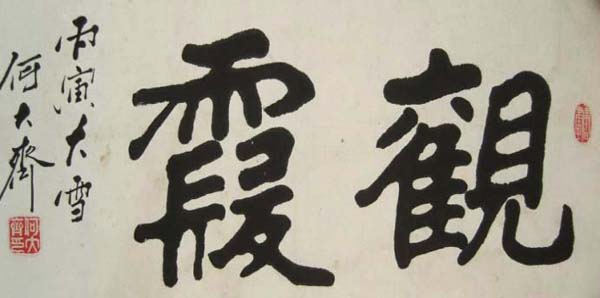 觀霞
丙寅大雪
何大齊
何大齊印